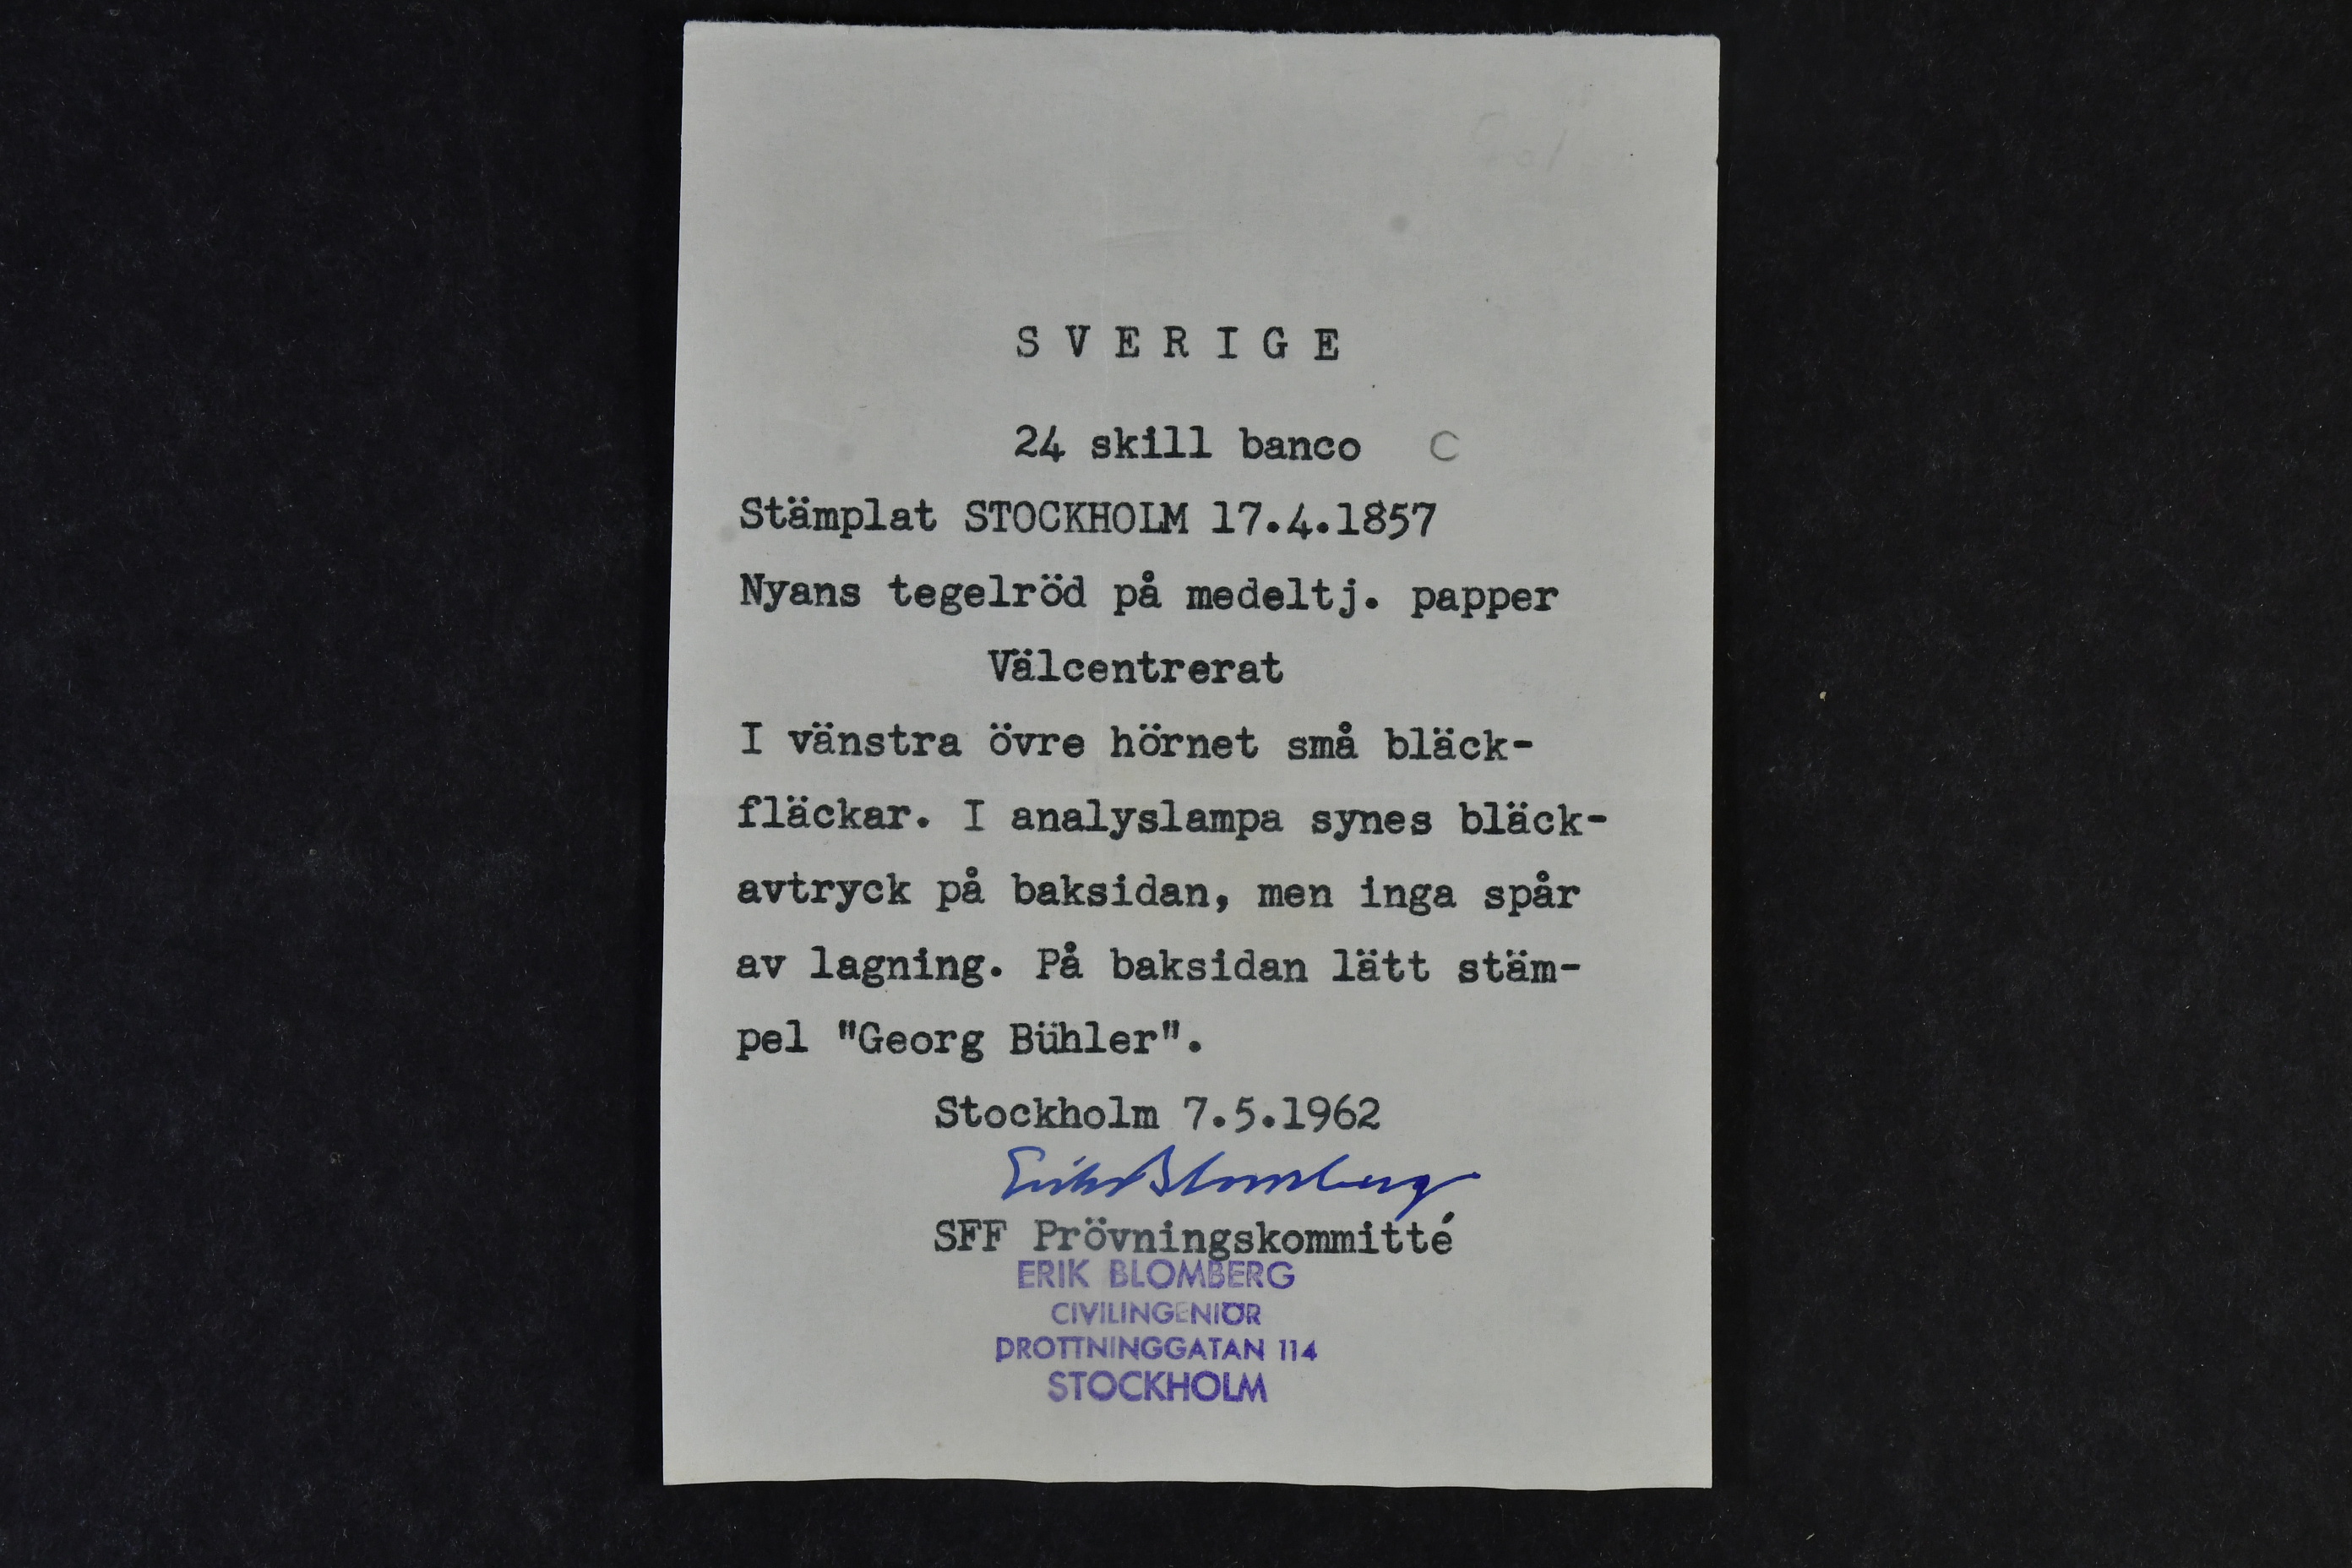 S V E R I G E
24 skill banco C
Stämplat STOCKHOLM 17.4.1857
Nyans tegelröd på medeltj. papper
Välcentrerat
I vänstra övre hörnet små bläck-
fläckar. I analyslampa synes bläck-
avtryck på baksidan, men inga spår
av lagning. På baksidan lätt stäm-
pel "Georg Bühler".
Stockholm 7.5.1962
Erik Blomberg
SFF Prövningskommitté
ERIK BLOMBERG
CIVILINGENIÖR
DROTTNINGGATAN 114
STOCKHOLM